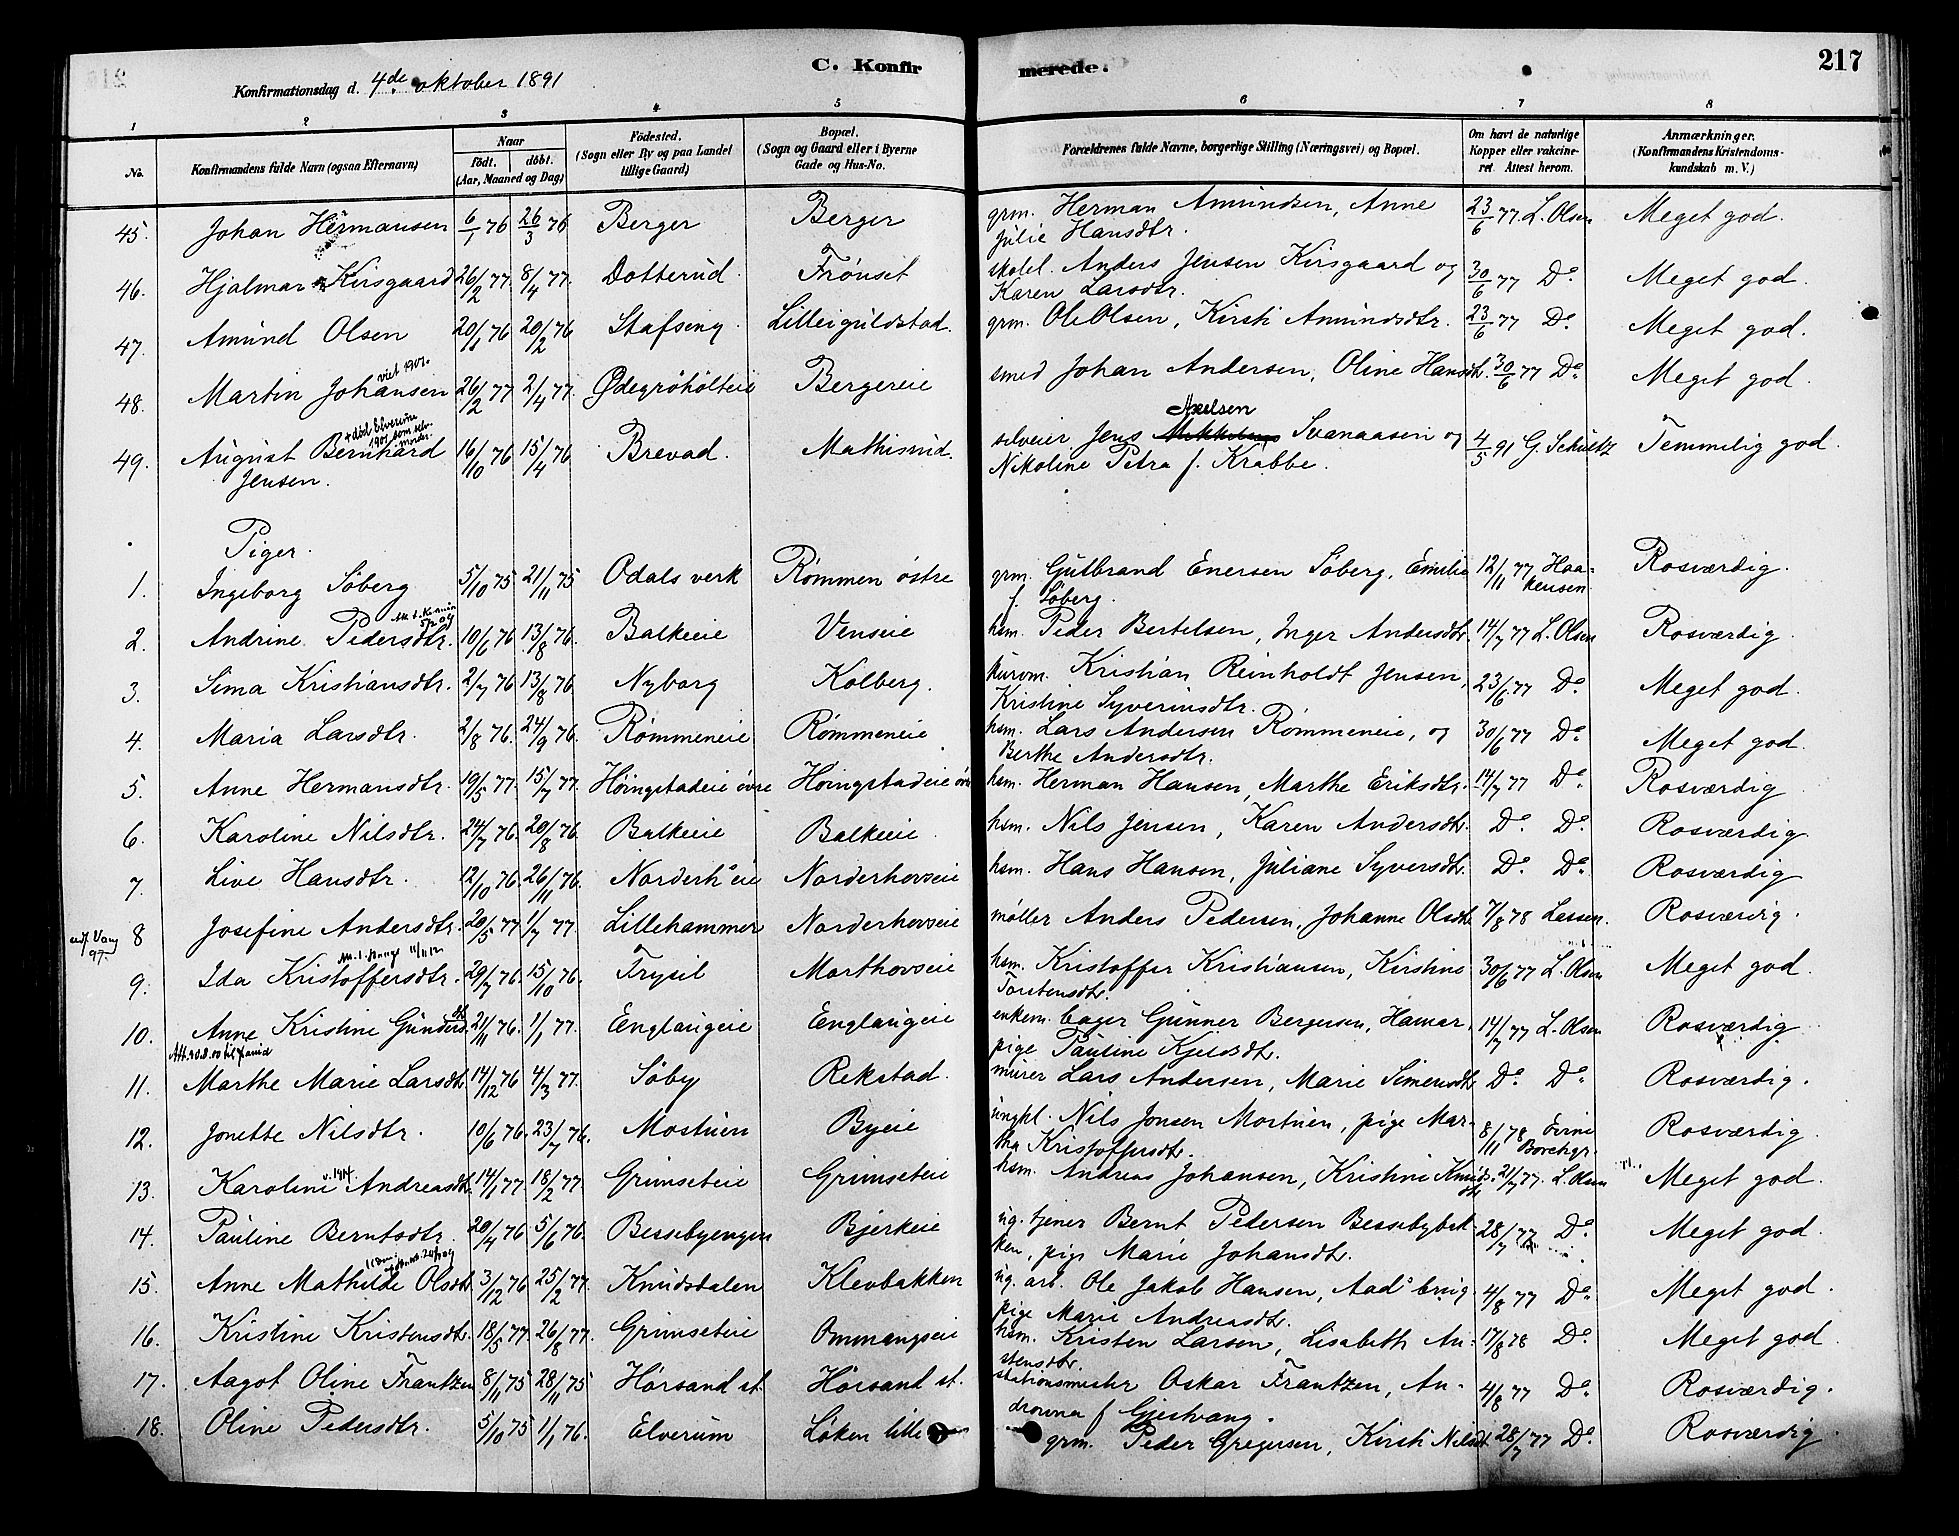 217
C. Konfirmerede.
Konfirmationsdag d. 4de oktober 1891
1 2 3 4 5 6 7 8
No. Konfirmandens fulde Navn (ogsaa Efternavn) Naar födt. döbt. (Aar, Maaned og Dag) Födested. (Sogn eller By og paa Landet tillige Gaard) Bopæl. (Sogn og Gaard eller i Byerne Gade og Hus-No. Forældrenes fulde Navne, borgerlige Stilling (Næringsvei) og Bopæl. Om havt de naturlige Kopper eller vakcineret. Attest herom. Anmærkninger. (Konfirmandens Kristendomskundskab m. V.)
45. Johan Hermansen 6/1 76 26/3 76 Berger Berger grm. Herman Amundsen, Anne Julie Hansdtr. 23/6 77 L. Olsen Meget god.
46. Hjalmar Kirsgaard 26/2 77. 8/4 77. Dotterud Frønset skolel. Anders Jensen Kirsgaard og Karen Larsdtr. 30/6 77 Do. Meget god.
47. Amund Olsen 20/1 76 20/2 76 Stafseng Lilleiguldstad. grm. Ole Olsen, Kirsti Amundsdtr. 23/6 77 Do. Meget god.
48. Martin Johansen viet 1901. 26/2 77 2/4 77. Ødegrøholteie Bergereie smed Johan Andersen, Oline Hansdtr. 30/6 77 Do. Meget god.
49. August Bernhard Jensen. + død Elverum 1901 som selvmorder. 16/10 76 15/4 76 Brevad. Mathisrud. selveier Jens Axelsen Svanaasen og Nikoline Petra f. Krabbe. 4/5 91 G. Schultz Temmelig god.
Piger.
1. Ingeborg Søberg 5/10 75 21/11 75 Odals verk Rømmen østre grm. Gulbrand Enersen Søberg, Emilie f. Søberg. 12/11 77 Haakensen Rosværdig.
2. Andrine Pedersdtr. 10/6 76 13/8 76. Balkeie Venseie hsm. Peder Bertelsen, Inger Andersdtr. 14/7 77 L. Olsen Rosværdig.
3. Sima Kristiansdtr. 2/7 76 13/8 76 Nyborg Kolberg. Kristian Reinholdt Jensen, Kristine Syverinsdtr. 23/6 77 Do. Meget god.
4. Maria Larsdtr. 2/8 76. 24/9 76. Rømmeneie Rømmeneie hsm. Lars Andersen Rømmeneie, og Berthe Andersdtr. 30/6 77 Do. Meget god.
5. Anne Hermansdtr. 19/5 77. 15/7 77. Høingstadeie øvre Høingstadeie øvre hsm. Herman Hansen, Marthe Eriksdtr. 14/7 77 Do. Rosværdig
6. Karoline Nilsdtr. 24/7 76. 20/8 76. Balkeie Balkeie. hsm. Nils Jensen, Karen Andersdtr. Do. Do. Rosværdig.
7. Live Hansdtr. 12/10 76. 26/11 76. Norderh° eie Norderhovseie hsm. Hans Hansen, Juliane Syversdtr. Do. Do. Rosværdig
udf. Vang 97. 8 Josefine Andersdtr. 20/5 77 1/7 77. Lillehammer Norderhovseie møller Anders Pedersen, Johanne Olsdtr. 7/8 78 Lassen. Rosværdig.
9. Ida Kristoffersdtr. 29/7 76. 15/10 76. Trysil Marthovseie hsm. Kristoffer Kristiansen, Kirstine Torstensdtr. 30/6 77 L. Olsen Meget god.
10. Anne Kristine Gundersdtr. 21/11 76. 1/1 77. Englaugeie Englaugeie enkem. bager Gunner Bergersen, Hamar, pige Pauline Kjelsdtr. 14/7 77 L. Olsen Rosværdig.
11. Marthe Marie Larsdtr. 14/12 76 4/3 77. Søby Rekstad. murer Lars Andersen, Marie Simensdtr Do. Do. Rosværdig.
12. Jonette Nilsdtr. 10/6 76. 23/7 76. Mostuen Byeie ungkl. Nils Jonsen Mostuen, pige Martha Kristoffersdtr. 8/11 78 Rosværdig.
13. Karoline Andreasdtr. v. 1914 14/1 77. 18/2 77. Grimseteie Grimseteie hsm. Andreas Johansen, Kristine Knudsdtr. 21/7 77. L. Olsen Meget god.
14. Pauline Berntsdtr. 20/4 76 5/6 76. Bessebyengen Bjerkeie ug. tjener Bernt Pedersen Bessebybakken, pige Marie Johansdtr. 28/7 77 Do. Meget god.
15. Anne Mathilde Olsdtr. 3/12 76 25/2 77. Knudsdalen Klevbakken ug. arb. Ole Jakob Hansen, Aads brug pige Marie Andreasdtr. 4/8 77 Do. Meget god.
16. Kristine Kristensdtr. 18/5 77. 26/8 77. Grimseteie Ommangseie hsm. Kristen Larsen, Lisabeth Austensdtr. 17/8 78 Do. Meget god.
17. Aagot Oline Frantzen 8/11 75 28/11 75 Hørsand st. Hørsand st. stationsmester Oskar Frantzen, Androvna f Gjestvang. 4/8 77 Do. Rosværdig.
18. Oline Pedersdtr. 5/10 75 1/1 76. Elverum Løken lille grm. Peder Gregersen, Kirsti Nilsdtr. 28/7 77 Do. Rosværdig.